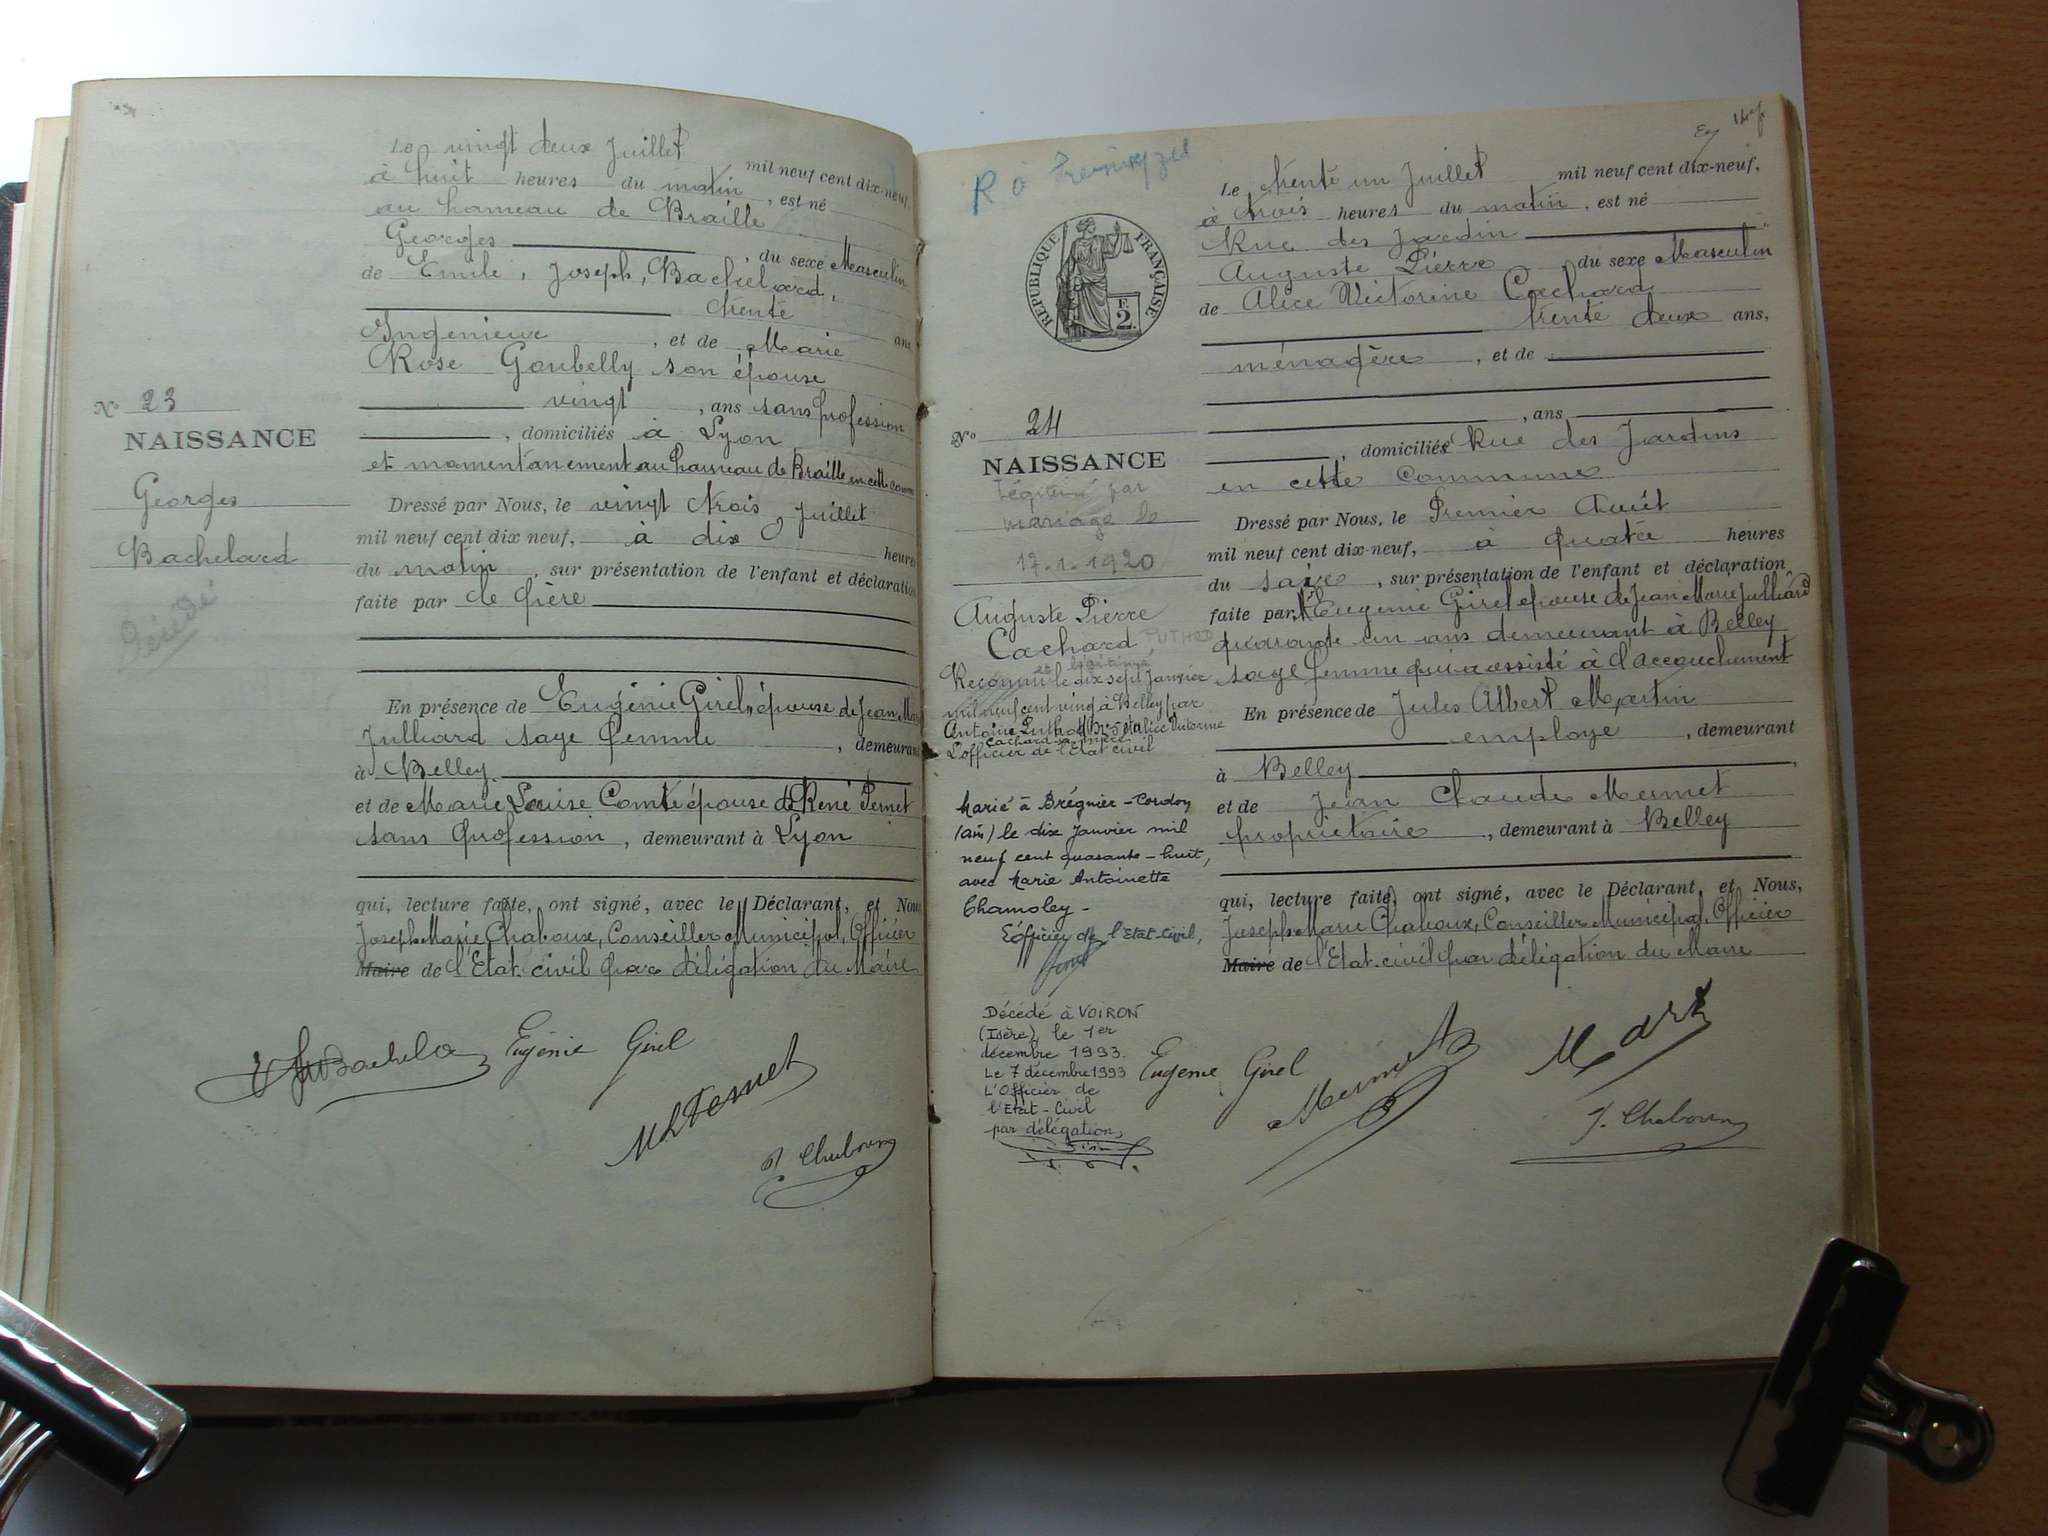 Le vingt deux Juillet mil neuf cent dix-neuf,
à huit heures du matin, est né
au hameau de Braille
Georges, du sexe Masculin
de Emile, Joseph, Bachelard,
trente ans
Ingenieur, et de Marie
Rose Goubelly son épouse
vingt, ans sans profession
, domiciliés à Lyon
et momentanement au hameau de Braille en cette comm
Dressé par Nous, le vingt trois Juillet
mil neuf cent dix neuf, à dix heures
du matin, sur présentation de l'enfant et déclaration
faite par le père
En présence de Eugénie Girel, épouse de Jean Marie
Julliard sage femme, demeurant
à Belley
et de Marie Louise Comte épouse de René Pernet
sans profession, demeurant à Lyon
qui, lecture faite, ont signé, avec le Déclarant, et Nous
Joseph Marie Chaboux, Conseiller Municipal, Officier
Maire de l'Etat civil par délégation du Maire
No 23
NAISSANCE
Georges
Bachelard
Décédé
Eugénie Girel
ML Pernet
J. Chaboux
R à
RÉPUBLIQUE FRANÇAISE
F.
2.
No 24
NAISSANCE
Légitimé par
mariage le
17.1.1920
Auguste Pierre
Cachard, PUTHOD
et légitimé
Reconnu le dix sept Janvier
mil neuf cent vingt à Belley par
Antoine Puthod et Alice Victorine
Cachard sa mère
L'officier de l'Etat civil
Marié à Brégnier-Cordon
(Ain) le dix Janvier mil
neuf cent quarante-huit,
avec Marie Antoinette
Chamoley-
L'officier de l'Etat-Civil,
Décédé à VOIRON
(Isère), le 1er
décembre 1993.
Le 7 décembre 1993
L'Officier de
l'Etat-Civil
par délégation,
Le trente un Juillet mil neuf cent dix-neuf,
à trois heures du matin, est né
Rue des Jardin
Auguste Pierre du sexe Masculin
de Alice Victorine Cachard
trente deux ans,
ménagère, et de
, ans
, domiciliés Rue des Jardins
en cette commune
Dressé par Nous, le Premier Août
mil neuf cent dix-neuf, à quatre heures
du soir, sur présentation de l'enfant et déclaration
faite par Eugenie Girel épouse de Jean Marie Julliard
quarante un ans demeurant à Belley
sage femme qui a assisté à l'accouchement
En présence de Jules Albert Martin
employe, demeurant
à Belley
et de Jean Claude Mermet
propriétaire, demeurant à Belley
qui, lecture faite, ont signé, avec le Déclarant, et Nous,
Joseph Marie Chaboux, Conseiller Municipal, Officier
Maire de l'Etat civil par délégation du Maire
Eugenie Girel
Mermet
J. Chaboux